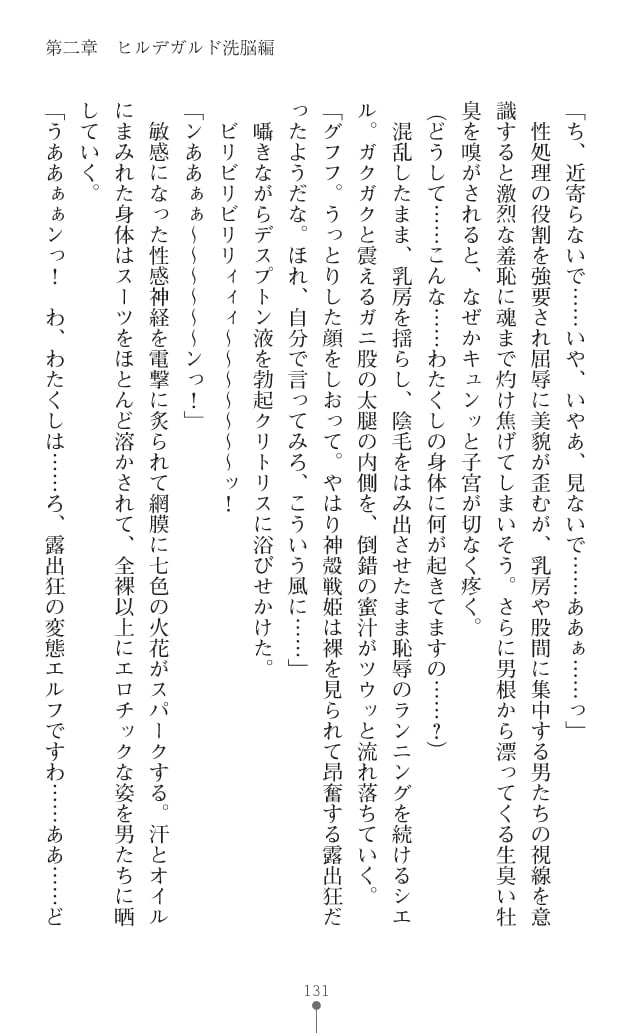 第二章　ヒルデガルド洗脳編
「ち、近寄らないで……いや、いやぁ、見ないで……ああぁ……っ」
　性処理の役割を強要され屈辱に美貌が歪むが、乳房や股間に集中する男たちの視線を意
識すると激烈な羞恥に魂まで灼け焦げてしまいそう。さらに男根から漂ってくる生臭い牡
臭を嗅がされると、なぜかキュンッと子宮が切なく疼く。
（どうして……こんな……わたくしの身体に何が起きてますの……？）
　混乱したまま、乳房を揺らし、陰毛をはみ出させたまま恥辱のランニングを続けるシエ
ル。ガクガクと震えるガニ股の太腿の内側を、倒錯の蜜汁がツウッと流れ落ちていく。
「グフフ。うっとりした顔をしおって。やはり神殻戦姫は裸を見られて昂奮する露出狂だ
ったようだな。ほれ、自分で言ってみろ、こういう風に……」
　囁きながらデスプトン液を勃起クリトリスに浴びせかけた。
　ビリビリビリリィィィ～～～～～～～ッ！
「ンああぁぁ～～～～～～ンっ！」
　敏感になった性感神経を電撃に炙られて網膜に七色の火花がスパークする。汗とオイル
にまみれた身体はスーツをほとんど溶かされて、全裸以上にエロチックな姿を男たちに晒
していく。
「うああぁぁンっ！　わ、わたくしは……ろ、露出狂の変態エルフですわ……ああ……ど
131